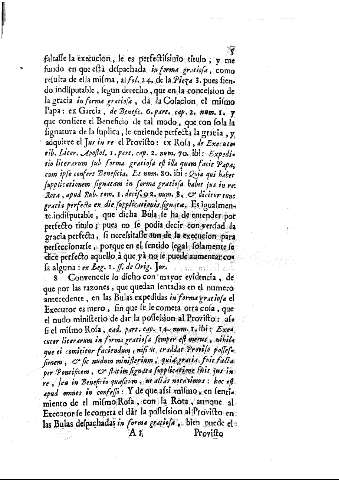 5
faltasse la execucion, le es perfectissimo titulo; y me
fundo en que està despachada in forma gratiosa, como
resulta de ella misma, al fol. 24. de la Pieza 3. pues sien-
do indisputable, segun derecho, que en la concession de
la gracia in forma gratiosa, dà la Colacion el mismo
Papa: ex Garcia, de Benefic. 6. part. cap. 2. num. 1. y
que confiere el Beneficio de tal modo, que con sola la
signatura de la suplica, se entiende perfecta la gracia, y
adquiere el Jus in re el Provisto: ex Rosa, de Execut.
lib. Liter. Apostol. 1. part. cap. 2. num. 70. ibi: Expedi-
tio literarum sub forma gratiosa est illa quam facit Papa,
cum ipse confert Beneficia. Es num. 80. ibi: Quia qui habet
supplicationem signatam in forma gratiosa habet jus in re:
Rota, apud Rub. tom. 1. decis. 92. num. 8. & dicitur tunc
gratia perfecta ex die supplicationis signata. Es igualmen-
te indisputable, que dicha Bula se ha de entender por
perfecto titulo; pues no se podia decir con verdad la
gracia perfecta, si necessitasse aun de la execucion para
perfeccionarse, porque en el sentido legal solamente se
dice perfecto aquello à que yà no se puede aumentar co-
sa alguna: ex Leg. 1. ff. de Orig. Jur.
8 Convencese lo dicho con mayor evidencia, de
que por las razones, que quedan sentadas en el numero
antecedente, en las Bulas expedidas in forma gratiosa el
Executor es mero, sin que se le cometa otra cosa, que
el nudo ministerio de dar la possession al Provisto: as-
si el mismo Rosa, ead. part. cap. 14. num. 1. ibi: Exe-
cutor literarum in forma gratiosa semper est merus, nihilq
que ei comititur faciendum, nisi ut tradat Proviso posses-
sionem, & sic nudum ministerium, quia gratia fuit facta
per Pontificem, & statim signata supplicatione fuit jus in
re, seu in Beneficio quaesitum, ut aliàs notavimus: hoc est
apud omnes in confesso: Y de aqui mismo, en senti-
miento de el mismo Rosa, con la Rota, aunque al
Executor se le cometa el dàr la possession al Provisto en
las Bulas despachadas in forma gratiosa, bien puede el
A 3 Provisto